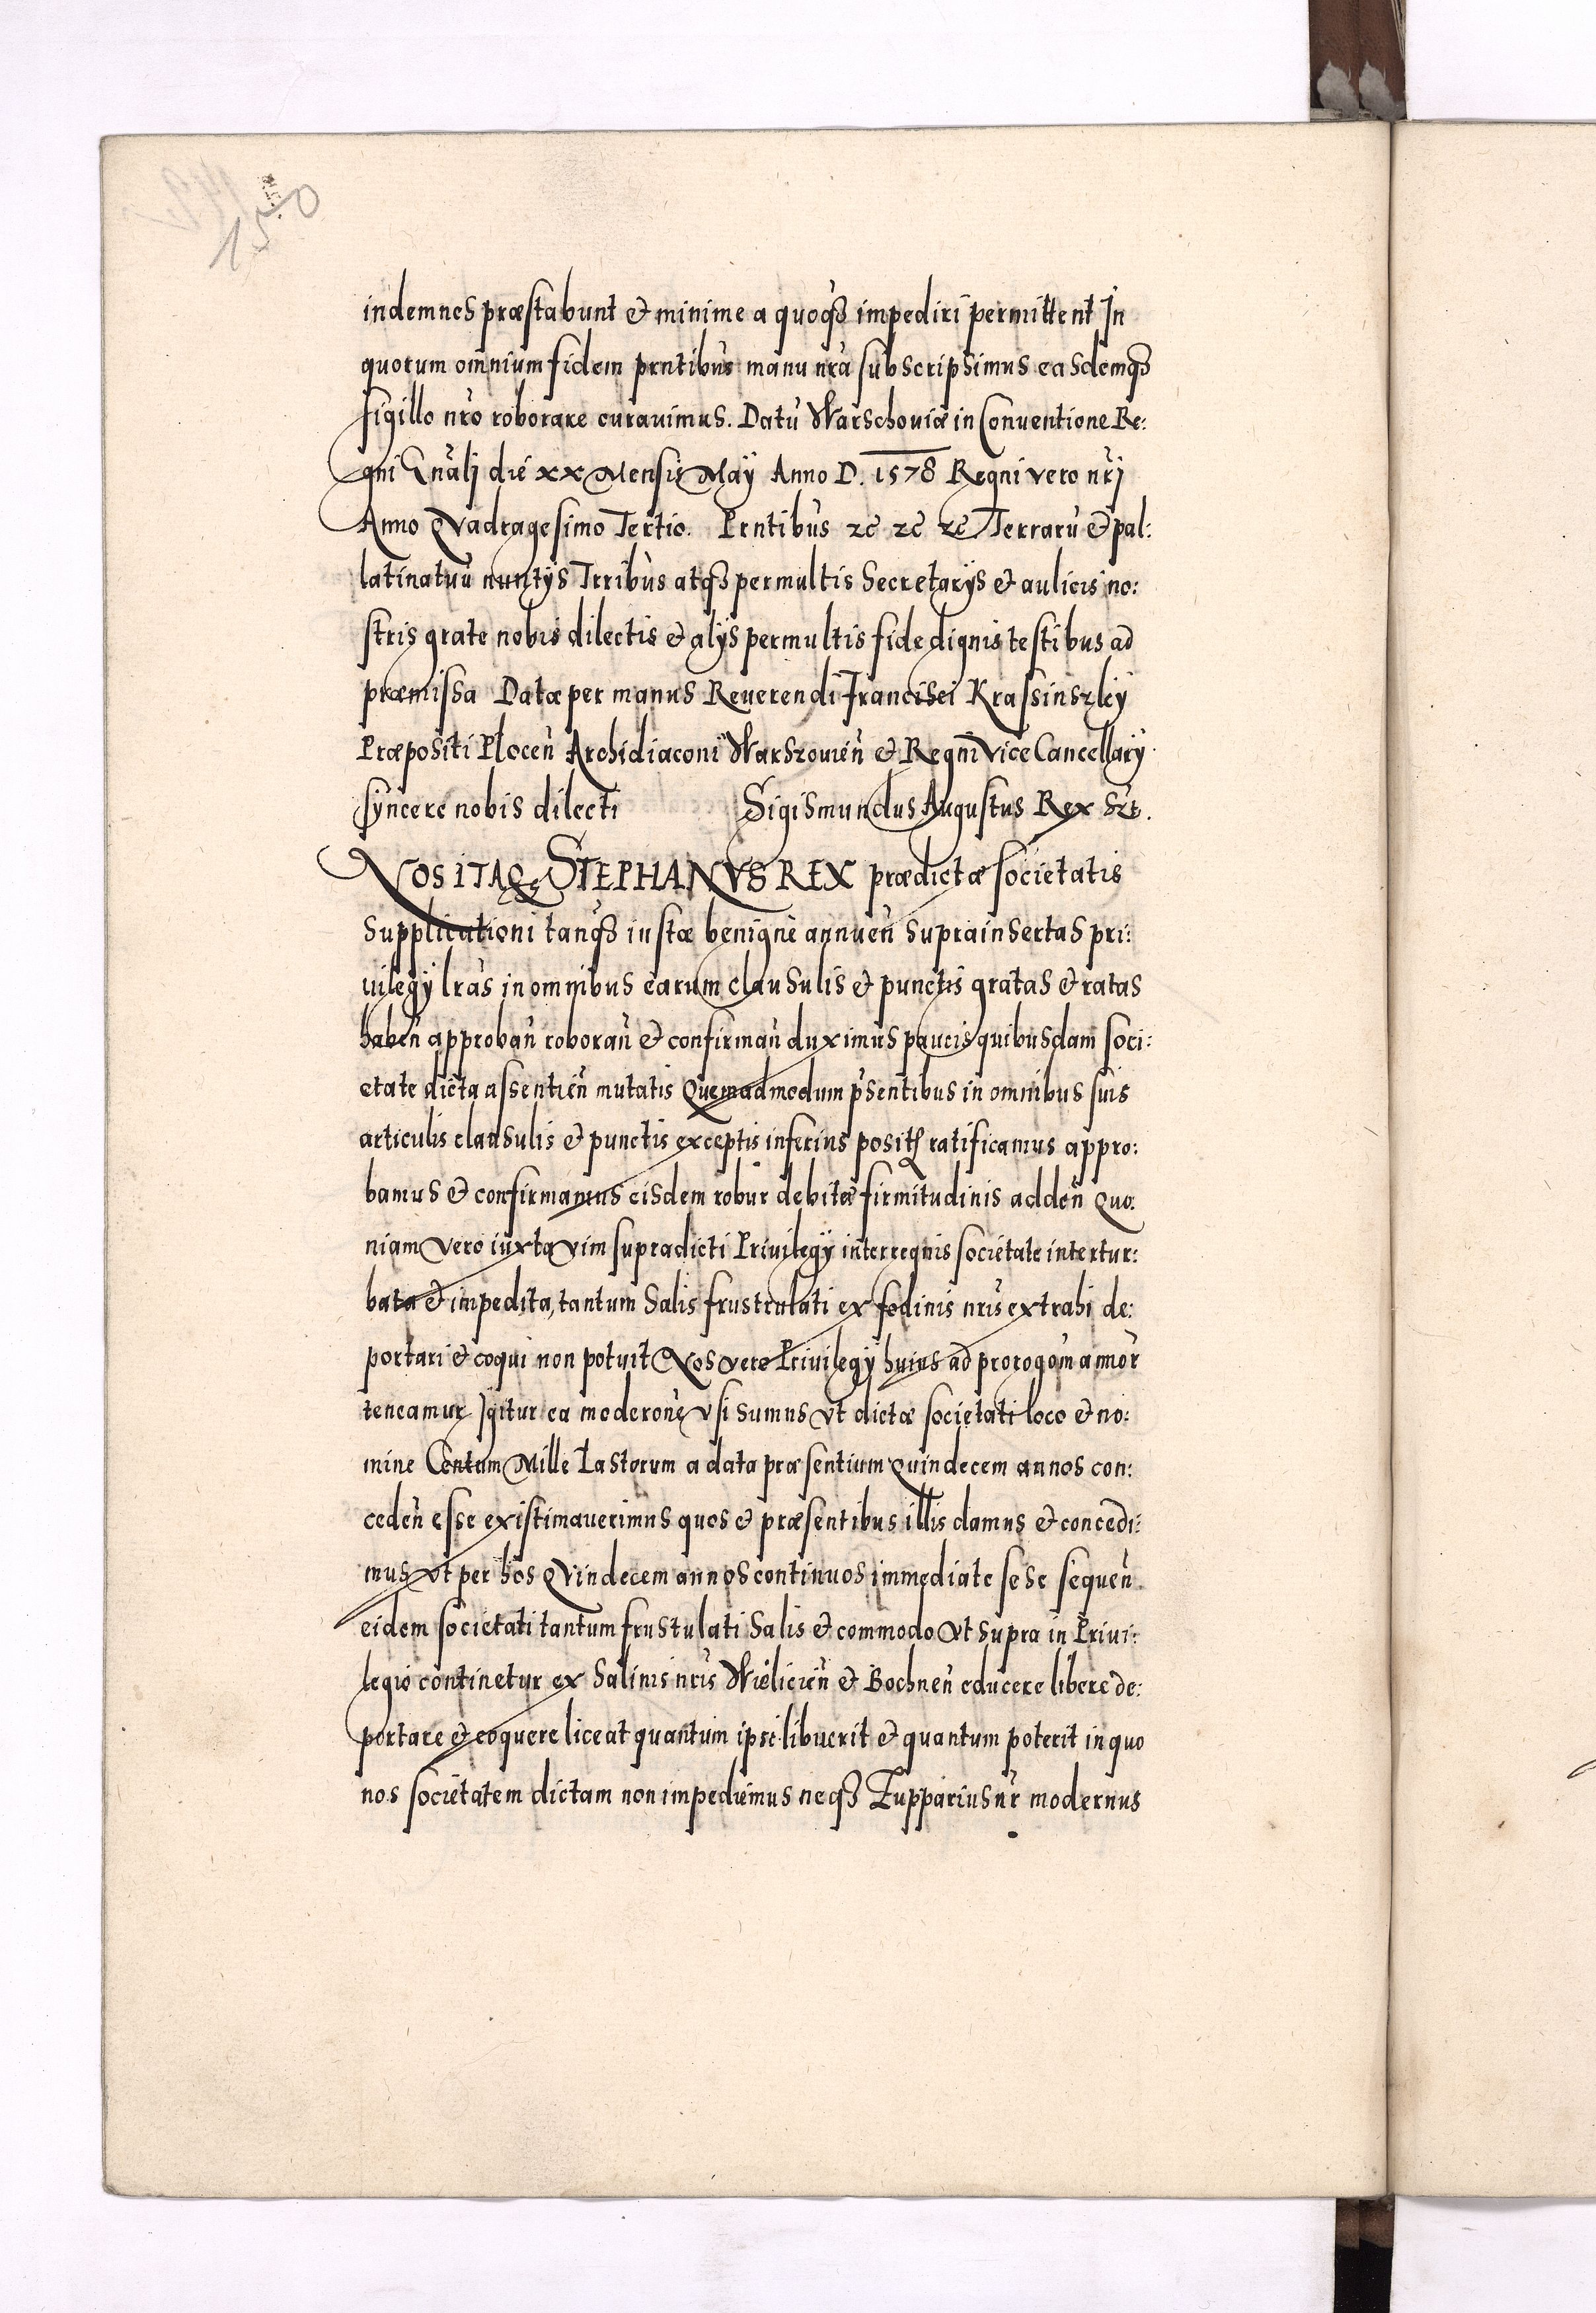 150
indemnes præstabunt & minime a quoq3 impediri permittent In
quorum omnium fidem pñtibus manu nrã subscripsimus easdemq3
sigillo nro roborare curavimus. Datũ Warschoviæ in Conventione Re:
gni Gnãlj die xx Mensis Maÿ Anno D. 1578 Regni vero nrj
Anno Qvadragesimo Tertio. Prntibus zc zc zc Terrarũ & pal:
latinatuũ nuntÿs Trribus atq3 permultis Secretarÿs & aulicis no:
stris grate nobis dilectis & alÿs permultis fide dignis testibus ad
præmissa Datæ per manus Reverendi Francisci Krassinszkÿ
Præpositi Plocen̄ Archidiaconi Warszovien̄ & Regni Vice Cancellarÿ
syncere nobis dilecti Sigismundus Augustus Rex Szt.
NOS ITAQ3 STEPHANVS REX prædictæ societatis
Supplicationi tanq3 iustæ benigne annuen̄ suprainsertas pri:
uilegÿ lras in omnibus earum clausulis & punctis gratas & ratas
haben̄ approban̄ roboran̄ & confirman̄ duximus paucis quibusdam soci:
etate dicta assentien̄ mutatis Quemadmodum p̃sentibus in omnibus suis
articulis clausulis & punctis exceptis inferius posit ratificamus appro:
bamus & confirmamus eisdem robur debitæ firmitudinis adden̄ Quo
niam vero iuxta vim supradicti Privilegÿ interregnis societate intertur:
bata & impedita, tantum Salis frustrulati ex fodinis nris extrahi de:
portari & coqui non potuit Nos vero Privilegÿ huius ad prorogom annor
teneamur Igitur ea moderone vsi sumus vt dictæ societati loco & no:
mine Centum Mille Lastorum a data præsentium Quindecem annos con:
ceden̄ esse existimaverimus quos & præsentibus illis damus & concedi:
mus vt per hos Qvindecem annos continuos immediate sese sequen̄
eidem societati tantum frustulati Salis & commodo vt supra in Privi:
legio continetur ex Salinis nris Wielicien̄ & Bochnen̄ educere libere de:
portare & coquere liceat quantum ipse libuerit & quantum poterit in quo
nos societatem dictam non impediemus neq3 Zuppariusnr modernus